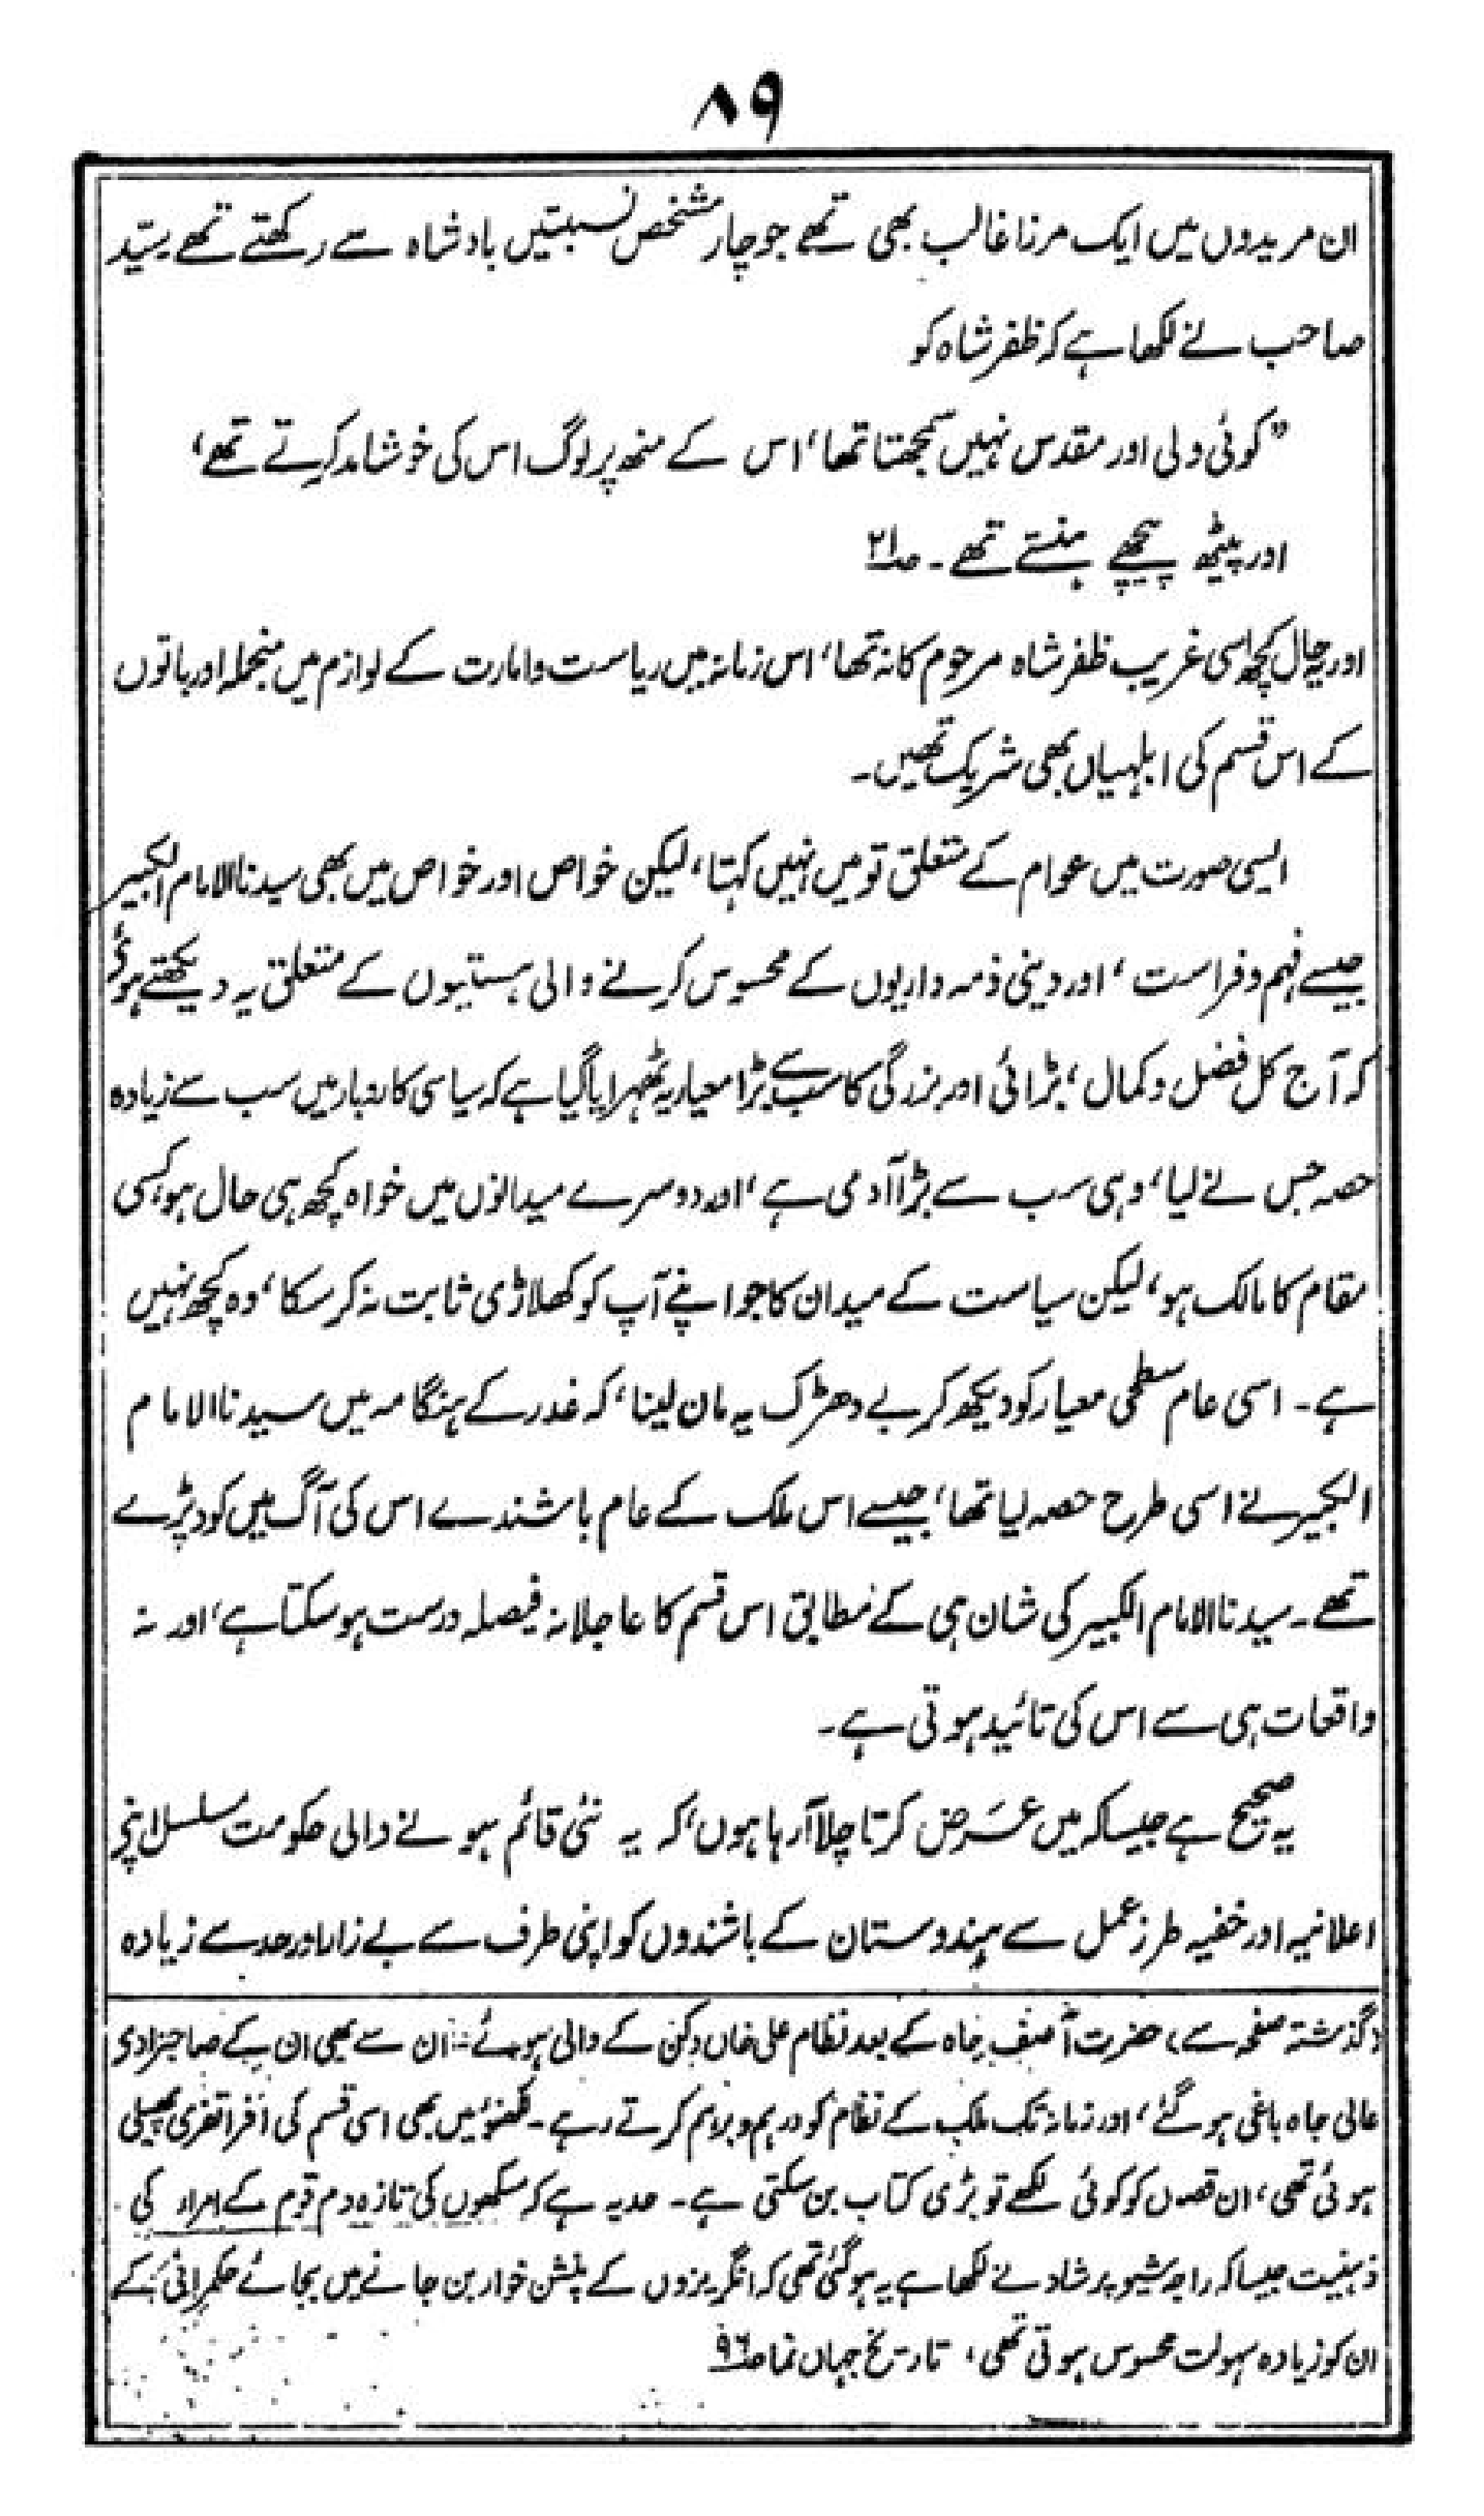 ۸۹
ان مریدوں میں ایک مرزا غالب بھی تھے جو چار مشخص نسبتیں بادشاہ سے رکھتے تھے سیّد
صاحب نے لکھا ہے کہ ظفر شاہ کو
”کوئی ولی اور مقدس نہیں سمجھتا تھا، اس کے منھ پر لوگ اس کی خوشامد کرتے تھے،
اور پیٹھ پیچھے ہنستے تھے۔ صـ۲۱
اور یہ حال کچھ اسی غریب ظفر شاہ مرحوم کا نہ تھا، اس زمانہ میں ریاست وامارت کے لوازم میں منجملہ اور باتوں
کے اس قسم کی ابلہیاں بھی شریک تھیں۔
ایسی صورت میں عوام کے متعلق تو میں نہیں کہتا، لیکن خواص اور خواص میں بھی سیدنا الامام الکبیر
جیسے فہم و فراست، اور دینی ذمہ داریوں کے محسوس کرنے والی ہستیوں کے متعلق یہ دیکھتے ہوئے
کہ آج کل فضل و کمال، بڑائی اور بزرگی کا سب سے بڑا معیار یہ ٹھہرایا گیا ہے کہ سیاسی کاروبار میں سب سے زیادہ
حصہ جس نے لیا، وہی سب سے بڑا آدمی ہے، اور دوسرے میدانوں میں خواہ کچھ ہی حال ہو، کسی
مقام کا مالک ہو، لیکن سیاست کے میدان کا جو اپنے آپ کو کھلاڑی ثابت نہ کر سکا، وہ کچھ نہیں
ہے۔ اسی عام سطحی معیار کو دیکھ کر بے دھڑک یہ مان لینا، کہ غدر کے ہنگامہ میں سیدنا الامام
الکبیر نے اسی طرح حصہ لیا تھا، جیسے اس ملک کے عام باشندے اس کی آگ میں کود پڑے
تھے۔ سیدنا الامام الکبیر کی شان ہی کے مطابق اس قسم کا عاجلانہ فیصلہ درست ہو سکتا ہے، اور نہ
واقعات ہی سے اس کی تائید ہوتی ہے۔
یہ صحیح ہے جیسا کہ میں عَرض کرتا چلا آرہا ہوں، کہ یہ نئی قائم ہونے والی حکومت مسلسل اپنی
اعلانیہ اور خفیہ طرز عمل سے ہندوستان کے باشندوں کو اپنی طرف سے بے زار اور حد سے زیادہ
(گذشتہ صفحہ سے) حضرت آصف جاہ کے بعد نظام علی خاں دکن کے والی ہوئے۔ ان سے بھی ان کے صاحبزادی
عالی جاہ باغی ہو گئے، اور زمانہ تک ملک کے نظام کو درہم و برہم کرتے رہے۔ لکھنؤ میں بھی اسی قسم کی افراتفری پھیلی
ہوئی تھی، ان قصوں کو کوئی لکھے تو بڑی کتاب بن سکتی ہے۔ حد یہ ہے کہ سکھوں کی تازہ دم قوم کے امراء کی
ذہنیت جیسا کہ راجہ شیو پرشاد نے لکھا ہے یہ ہو گئی تھی کہ انگریزوں کے پنشن خوار بن جانے میں بجائے حکمرانی کے
ان کو زیادہ سہولت محسوس ہوتی تھی، تاریخ جہاں نما صـ۹۶